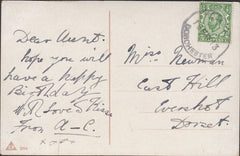 Dear Aunt.
hope you will
have a happy
Birthday
with Love & Kisses
from A-C.
x x x x
Miss Newman
East Hill
Evershot
Dorset.
DORCHESTER